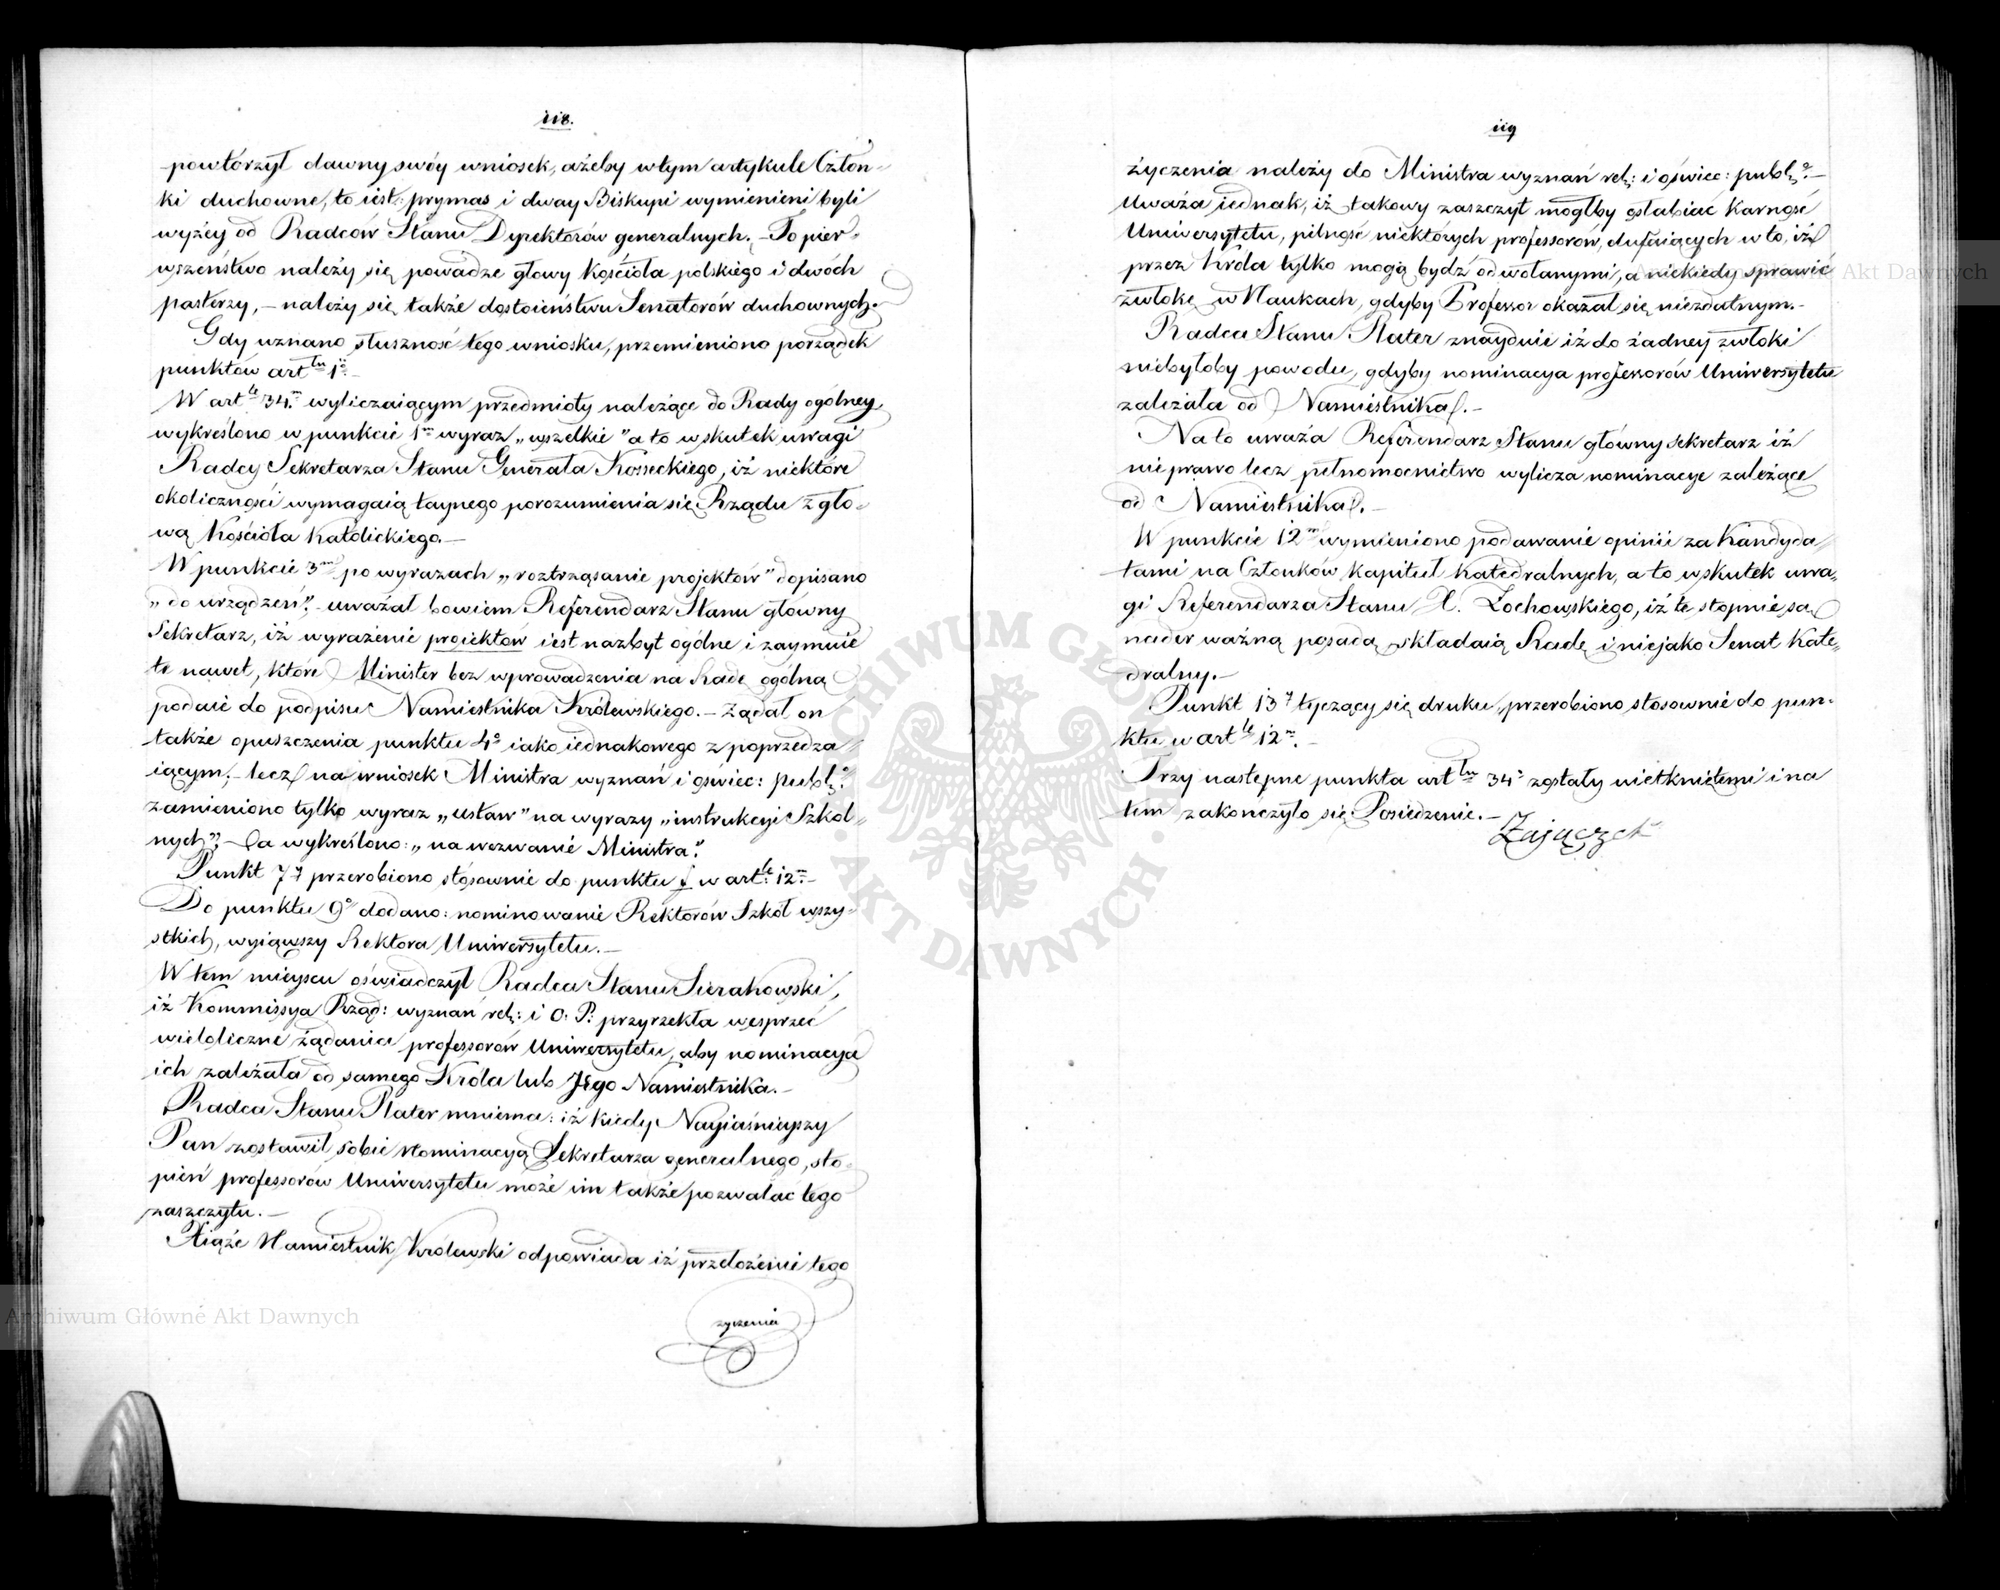 118.
powtórzył dawny swóy wniosek, ażeby w tym artykule Człon-
ki duchowne, to iest: prymas i dway Biskupi wymienieni byli
wyżey od Radców Stanu Dyrektorów generalnych. – To pier-
wszenstwo należy się powadze głowy Kościoła polskiego i dwóch
pasterzy, – należy się także dostoieństwu Senatorów duchownych.
Gdy uznano słuszność tego wniosku, przemieniono porządek
punktów art<sup>łu</sup> 1°. –
W art<sup>le</sup> 34.<sup>m</sup> wyliczaiącym przedmioty należące do Rady ogólney,
wykreślono w punkcie 1<sup>m</sup> wyraz „wszelkie” a to w skutek uwagi
Radcy Sekretarza Stanu Generała Kosseckiego, iż niektóre
okoliczności wymagaią taynego porozumienia się Rządu z gło-
wą Kościoła Katolickiego. –
W punkcie 3<sup>m</sup> po wyrazach „roztrząsanie projektów” dopisano
„do urządzeń”, – uważał bowiem Referendarz Stanu główny
Sekretarz, iż wyrażenie proiektów iest nazbyt ogólne i zaymuie
te nawet, które Minister bez wprowadzenia na Radę ogólną
podaie do podpisu Namiestnika Królewskiego. – Żądał on
także opuszczenia punktu 4° iako iednakowego z poprzedza-
iącym; – lecz na wniosek Ministra wyznań i oświec: publ:°
zamieniono tylko wyraz „ustaw” na wyrazy „instrukcyi Szkol-
nych”, – a wykreślono: „na wezwanie Ministra”.
Punkt 7<sup>y</sup> przerobiono stósownie do punktu f w art<sup>le</sup> 12<sup>m</sup>. –
Do punktu 9° dodano: nominowanie Rektorów Szkół wszy-
stkich, wyiąwszy Rektora Uniwersytetu. –
W tem mieyscu oświadczył Radca Stanu Sierakowski,
iż Kommissya Rząd: wyznań rel: i O. P. przyrzekła wesprzeć
wieloliczne żądania professorów Uniwersytetu, aby nominacya
ich zależała od samego Króla lub Jego Namiestnika. –
Radca Stanu Plater mniema: iż kiedy Nayiaśnieyszy
Pan zostawił sobie Nominacyą Sekretarza generalnego, sto-
pień professorów Uniwersytetu może im także pozwalać tego
zaszczytu. –
Xiąże Namiestnik Królewski odpowiada iż przełożenie tego
życzenia
119
życzenia należy do Ministra wyznań rel: i oświec: publ:° –
Uważa iednak, iż takowy zaszczyt mógłby osłabiać Karność
Uniwersytetu, pilność niektórych professorów, dufaiących w to, iż
przez Króla tylko mogą bydź odwołanymi, a niekiedy sprawić
zwłokę w Naukach, gdyby Professor okazał się niezdatnym. –
Radca Stanu Plater znayduie iż do żadney zwłoki
niebyłoby powodu, gdyby nominacya professorów Uniwersytetu
zależała od Namiestnika. –
Na to uważa Referendarz Stanu główny sekretarz iż
nie prawo lecz pełnomocnictwo wylicza nominacye zależące
od Namiestnika. –
W punkcie 12<sup>m</sup> wymieniono podawanie opinii za Kandyda-
tami na Członków Kapituł Katedralnych, a to w skutek uwa-
gi Referendarza Stanu X. Łochowskiego, iż te stopnie są
nader ważną posadą, składaią Radę i niejako Senat Kate-
dralny. –
Punkt 13<sup>y</sup> tyczący się druku, przerobiono stosownie do pun-
ktu w art<sup>le</sup> 12<sup>m</sup>. –
Trzy następne punkta art<sup>łu</sup> 34° zostały nietkniętemi i na
tem zakończyło się Posiedzenie. –
Zajączek
ARCHIWUM GŁÓWNE AKT DAWNYCH
Archiwum Główne Akt Dawnych
Akt Dawnych